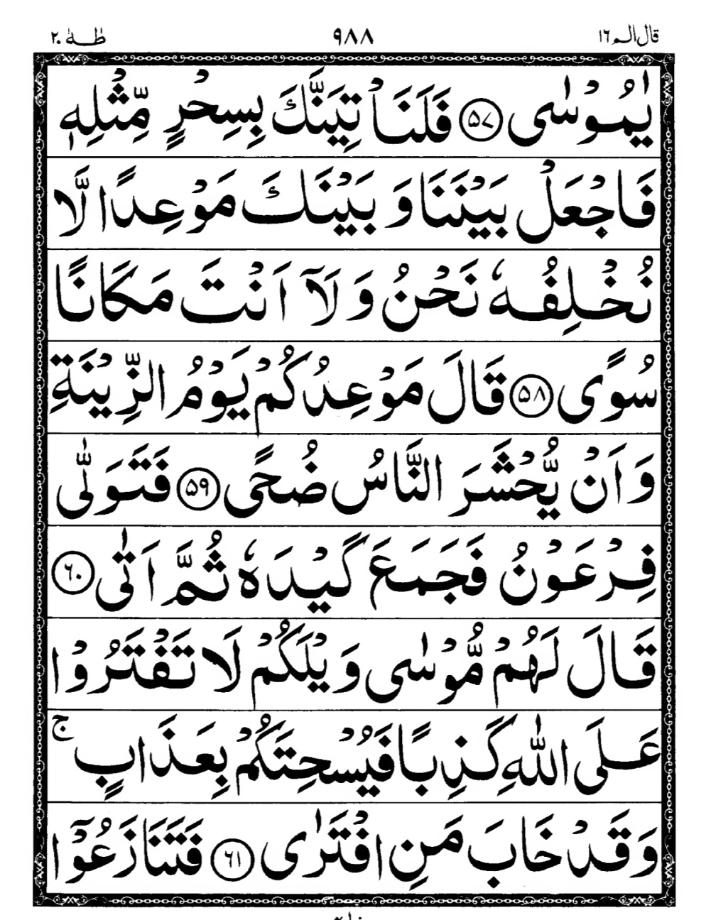 قال الم ١٦ ٩٨٨ طٰهٰ ٢٠
يٰمُوْسٰى ﴿٥٧﴾ فَلَنَاْتِيَنَّكَ بِسِحْرٍ مِّثْلِهٖ
فَاجْعَلْ بَيْنَنَا وَ بَيْنَكَ مَوْعِدًا لَّا
نُخْلِفُهٗ نَحْنُ وَ لَاۤ اَنْتَ مَكَانًا
سُوًى ﴿٥٨﴾ قَالَ مَوْعِدُكُمْ يَوْمُ الزِّيْنَةِ
وَ اَنْ يُّحْشَرَ النَّاسُ ضُحًى ﴿٥٩﴾ فَتَوَلّٰى
فِرْعَوْنُ فَجَمَعَ كَيْدَهٗ ثُمَّ اَتٰى ﴿٦٠﴾
قَالَ لَهُمْ مُّوْسٰى وَيْلَكُمْ لَا تَفْتَرُوْا
عَلَى اللّٰهِ كَذِبًا فَيُسْحِتَكُمْ بِعَذَابٍ ۚ
وَ قَدْ خَابَ مَنِ افْتَرٰى ﴿٦١﴾ فَتَنَازَعُوْۤا